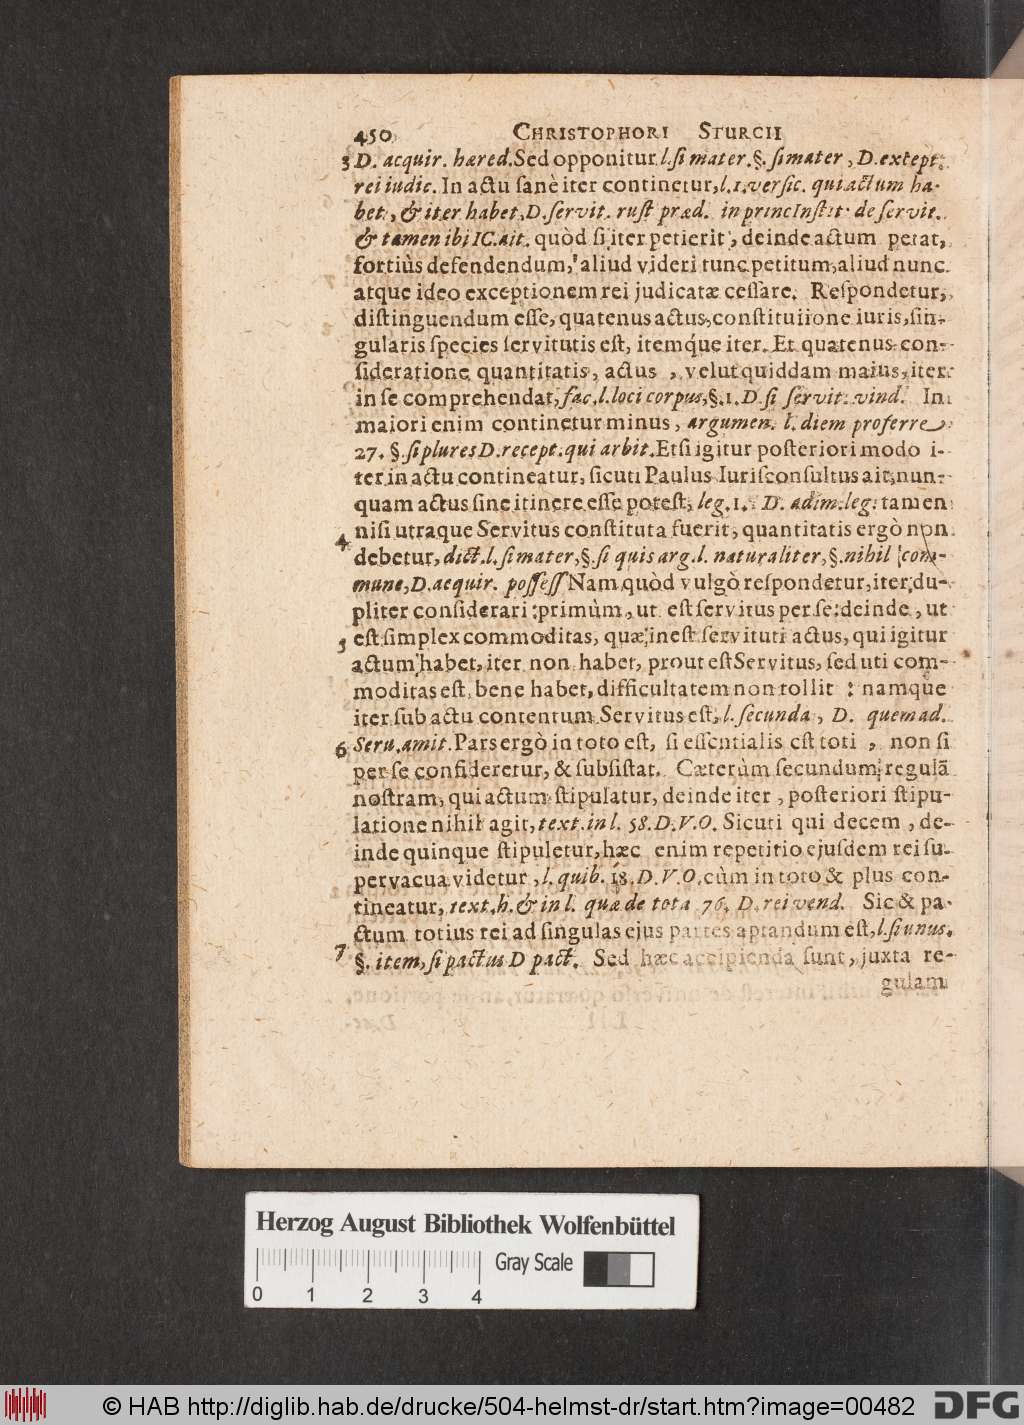 450 CHRISTOPHORI STURCII
3 D. acquir. hæred. Sed opponitur l. si mater. §. si mater, D. except.
rei iudic. In actu sanè iter continetur, l. 1. versic. qui actum ha-
bet, & iter habet, D. servit. rust præd. in princ Instit. de servit.
& tamen ibi IC. ait. quòd si iter petierit, deinde actum petat,
fortiùs defendendum, aliud videri tunc petitum, aliud nunc
atque ideo exceptionem rei judicatæ cessare. Respondetur,
distinguendum esse, quatenus actus, constituiione iuris, sin-
gularis species servitutis est, itemq́ue iter. Et quatenus con-
sideratione quantitatis, actus, velut quiddam maius, iter
in se comprehendat, fac. l. loci corpus, §. 1. D. si servit. vind. In
maiori enim continetur minus, argumen. l. diem proferre
27. §. si plures D. recept. qui arbit. Etsi igitur posteriori modo i-
ter in actu contineatur, sicuti Paulus Iurisconsultus ait, nun-
quam actus sine itinere esse potest, leg. 1. D. adim. leg. tamen
4 nisi utraque Servitus constituta fuerit, quantitatis ergò non
debetur, dict. l. si mater, §. si quis arg. l. naturaliter, §. nihil com-
mune, D. acquir. possess Nam quòd vulgò respondetur, iter du-
pliter considerari: primùm, ut est servitus per se: deinde, ut
5 est simplex commoditas, quæ inest servituti actus, qui igitur
actum habet, iter non habet, prout est Servitus, sed uti com-
moditas est, bene habet, difficultatem non tollit: namque
iter sub actu contentum Servitus est, l. secunda, D. quemad.
6 Seru. amit. Pars ergò in toto est, si essentialis est toti, non si
per se consideretur, & subsistat. Cæterùm secundum regulā
nostram, qui actum stipulatur, deinde iter, posteriori stipu-
latione nihil agit, text. in l. 58. D. V. O. Sicuti qui decem, de-
inde quinque stipuletur, hæc enim repetitio ejusdem rei su-
pervacua videtur, l. quib. 18. D. V. O. cùm in toto & plus con-
tineatur, text. h. & in l. quæ de tota 76. D. rei vend. Sic & pa-
ctum totius rei ad singulas ejus partes aptandum est, l. si unus.
7 §. item, si pactus D pact. Sed hæc accipienda sunt, juxta re-
gulam
Herzog August Bibliothek Wolfenbüttel
0 1 2 3 4 Gray Scale
© HAB http://diglib.hab.de/drucke/504-helmst-dr/start.htm?image=00482 DFG